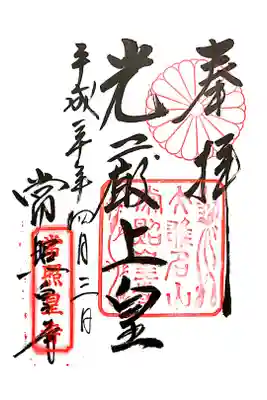 奉拝
光厳上皇
平成二十年四月三日
常照皇寺
大雄名山
常照皇寺